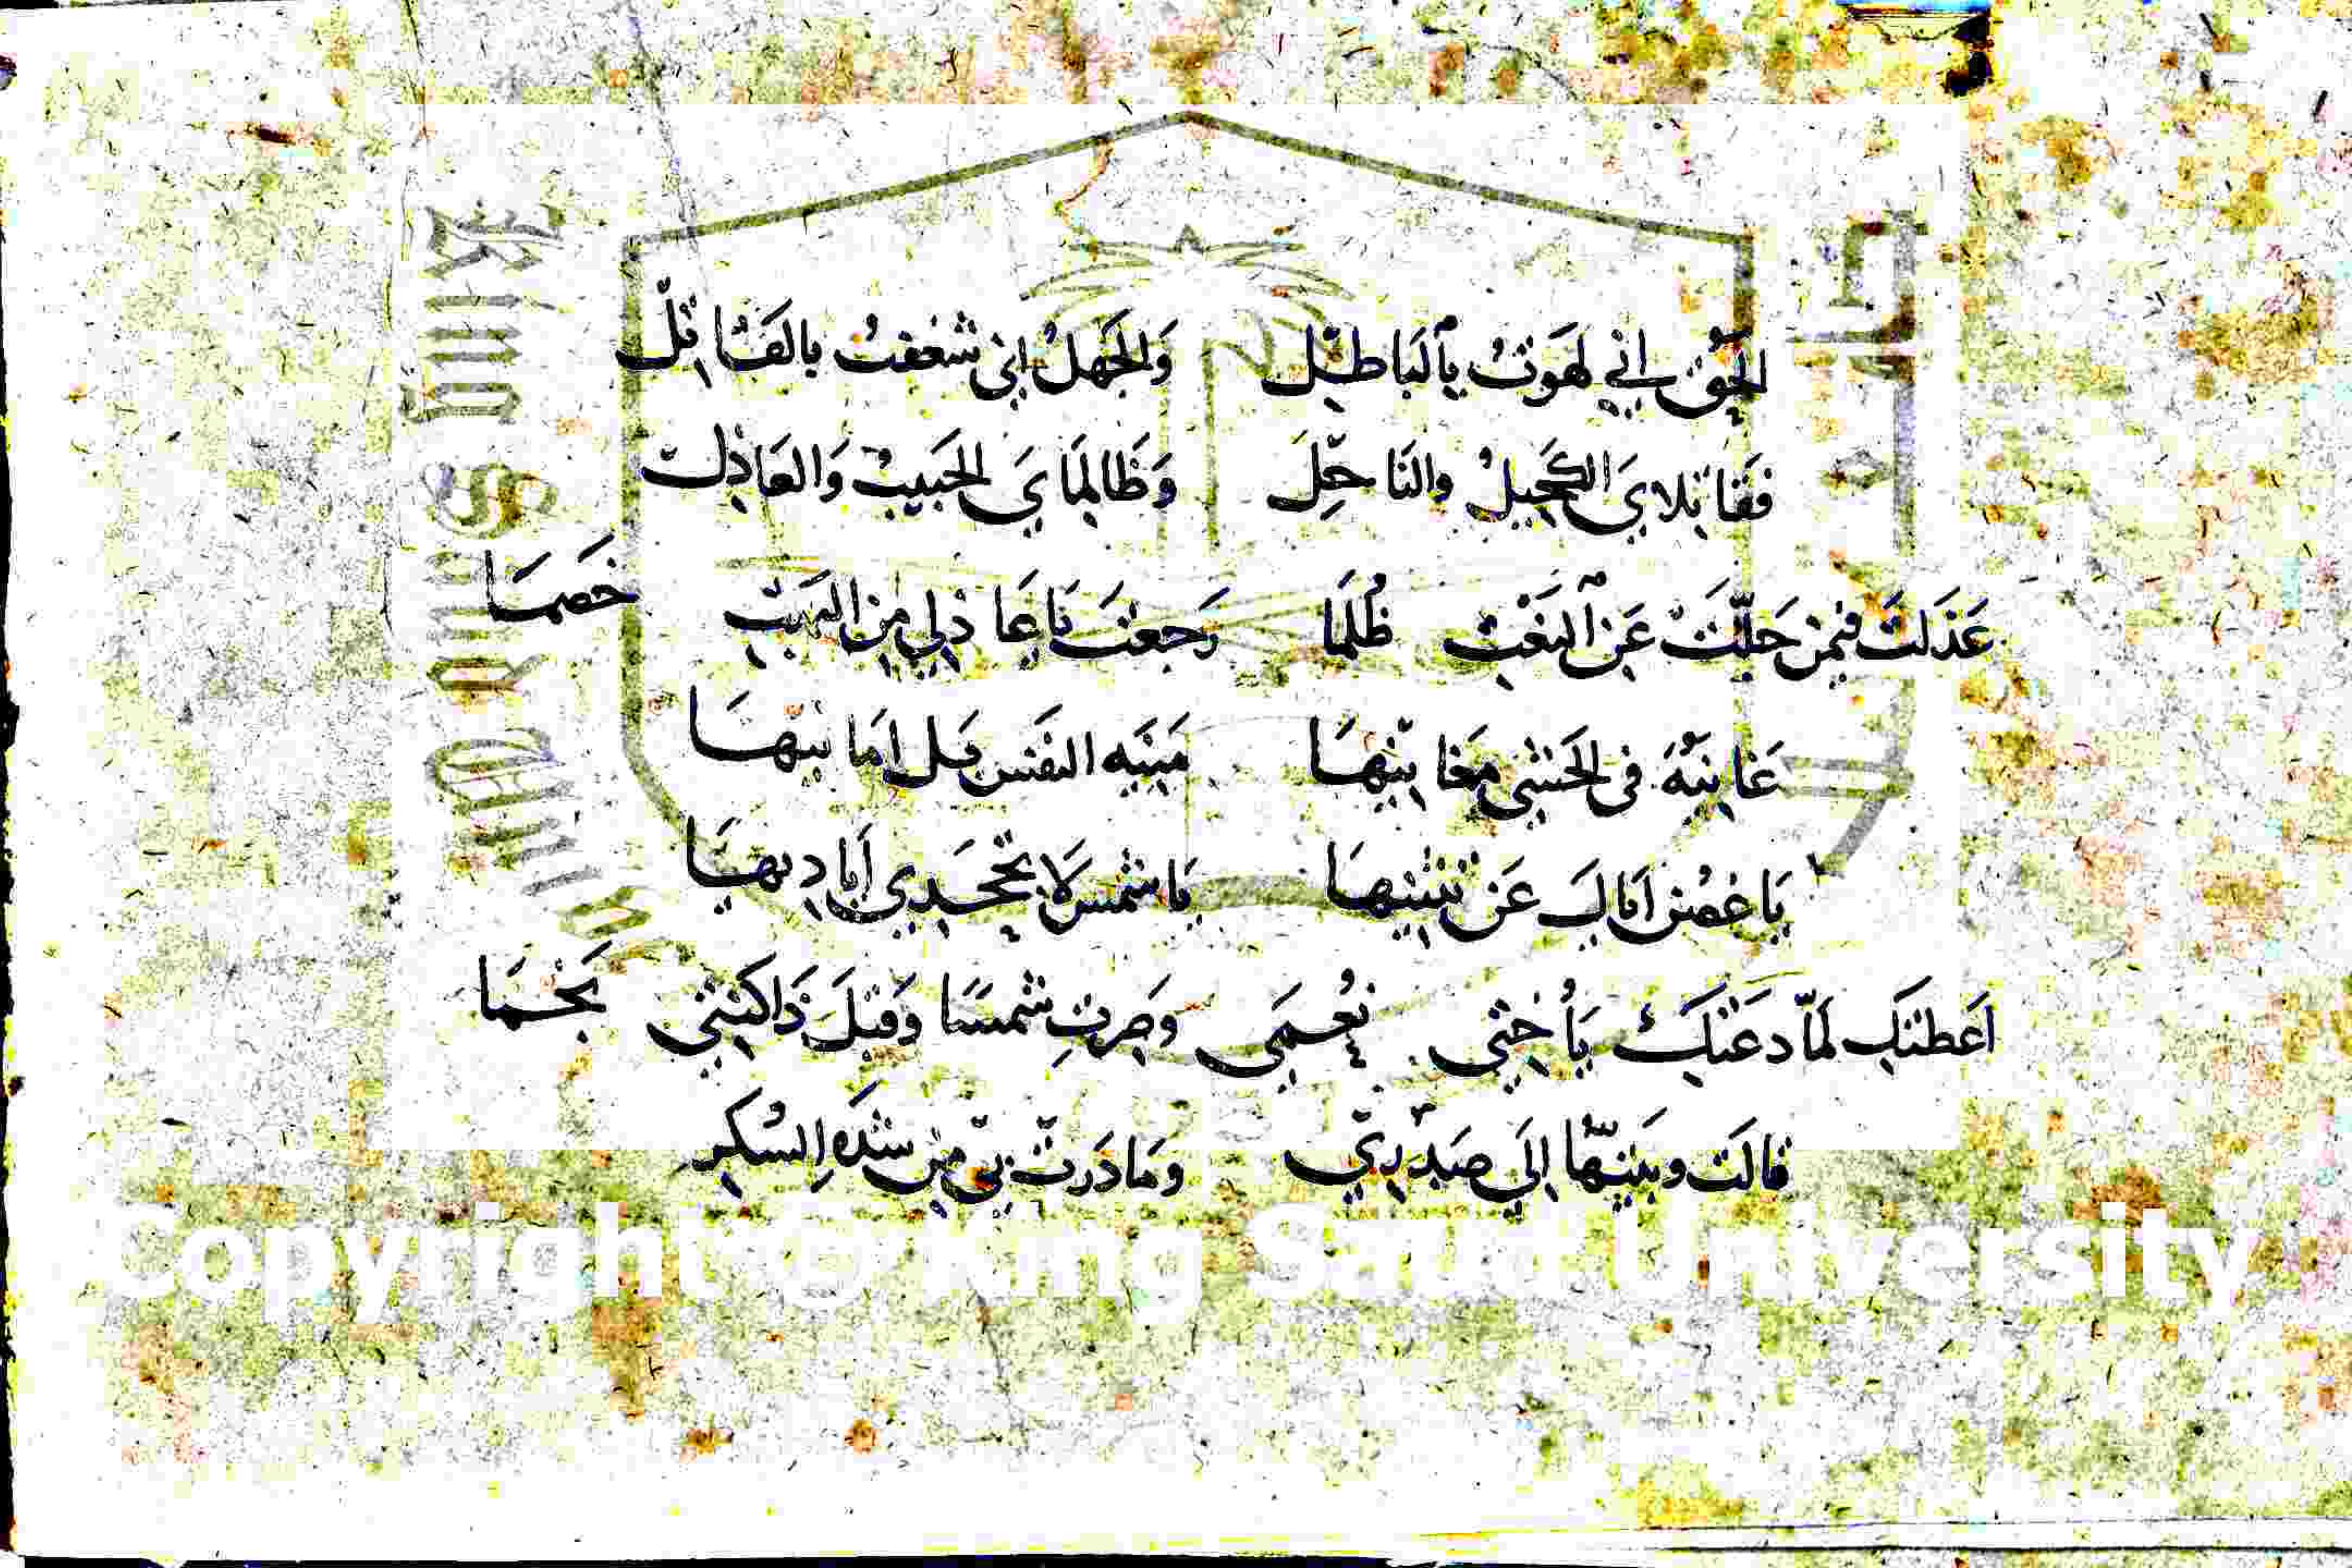 الحق اني لهوت بالباطل والجهل اني شغفت بالقاتل
فقاتلاي الكحيل والناحل وظالماي الحبيب والعاذل
عذلت فيمن حلت عن البغت ظلما رجعت يا عاذلي من البهت خصما
غانية في الحشى مغانيها منية النفس قل امانيها
يا غصن اياك عن تثنيها يا شمس لا تجحدي اياديها
اعطتك لما دعتك يا أختي نعمى وصرت شمسا وقبل ذا كنتي نجما
قالت وبينتها الى صدري وما درت بي من شدة السكر
King Saud University
Copyright © King Saud University